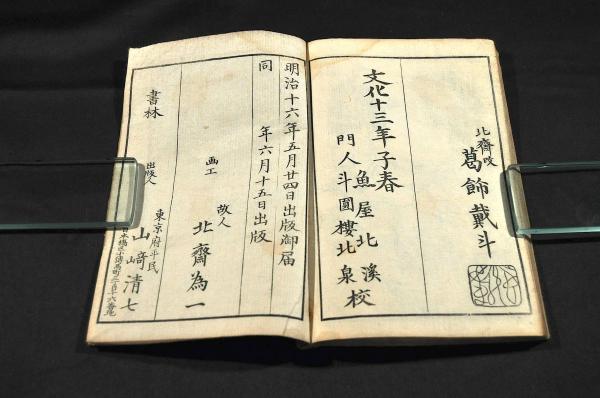 北齋改
葛飾戴斗
文化十三年子春
魚屋北溪
門人斗圓樓北泉校
明治十六年五月廿四日出版御届
同 年六月十五日出版
画工 故人 北齋為一
東京府平民
書林 出版人 山﨑清七